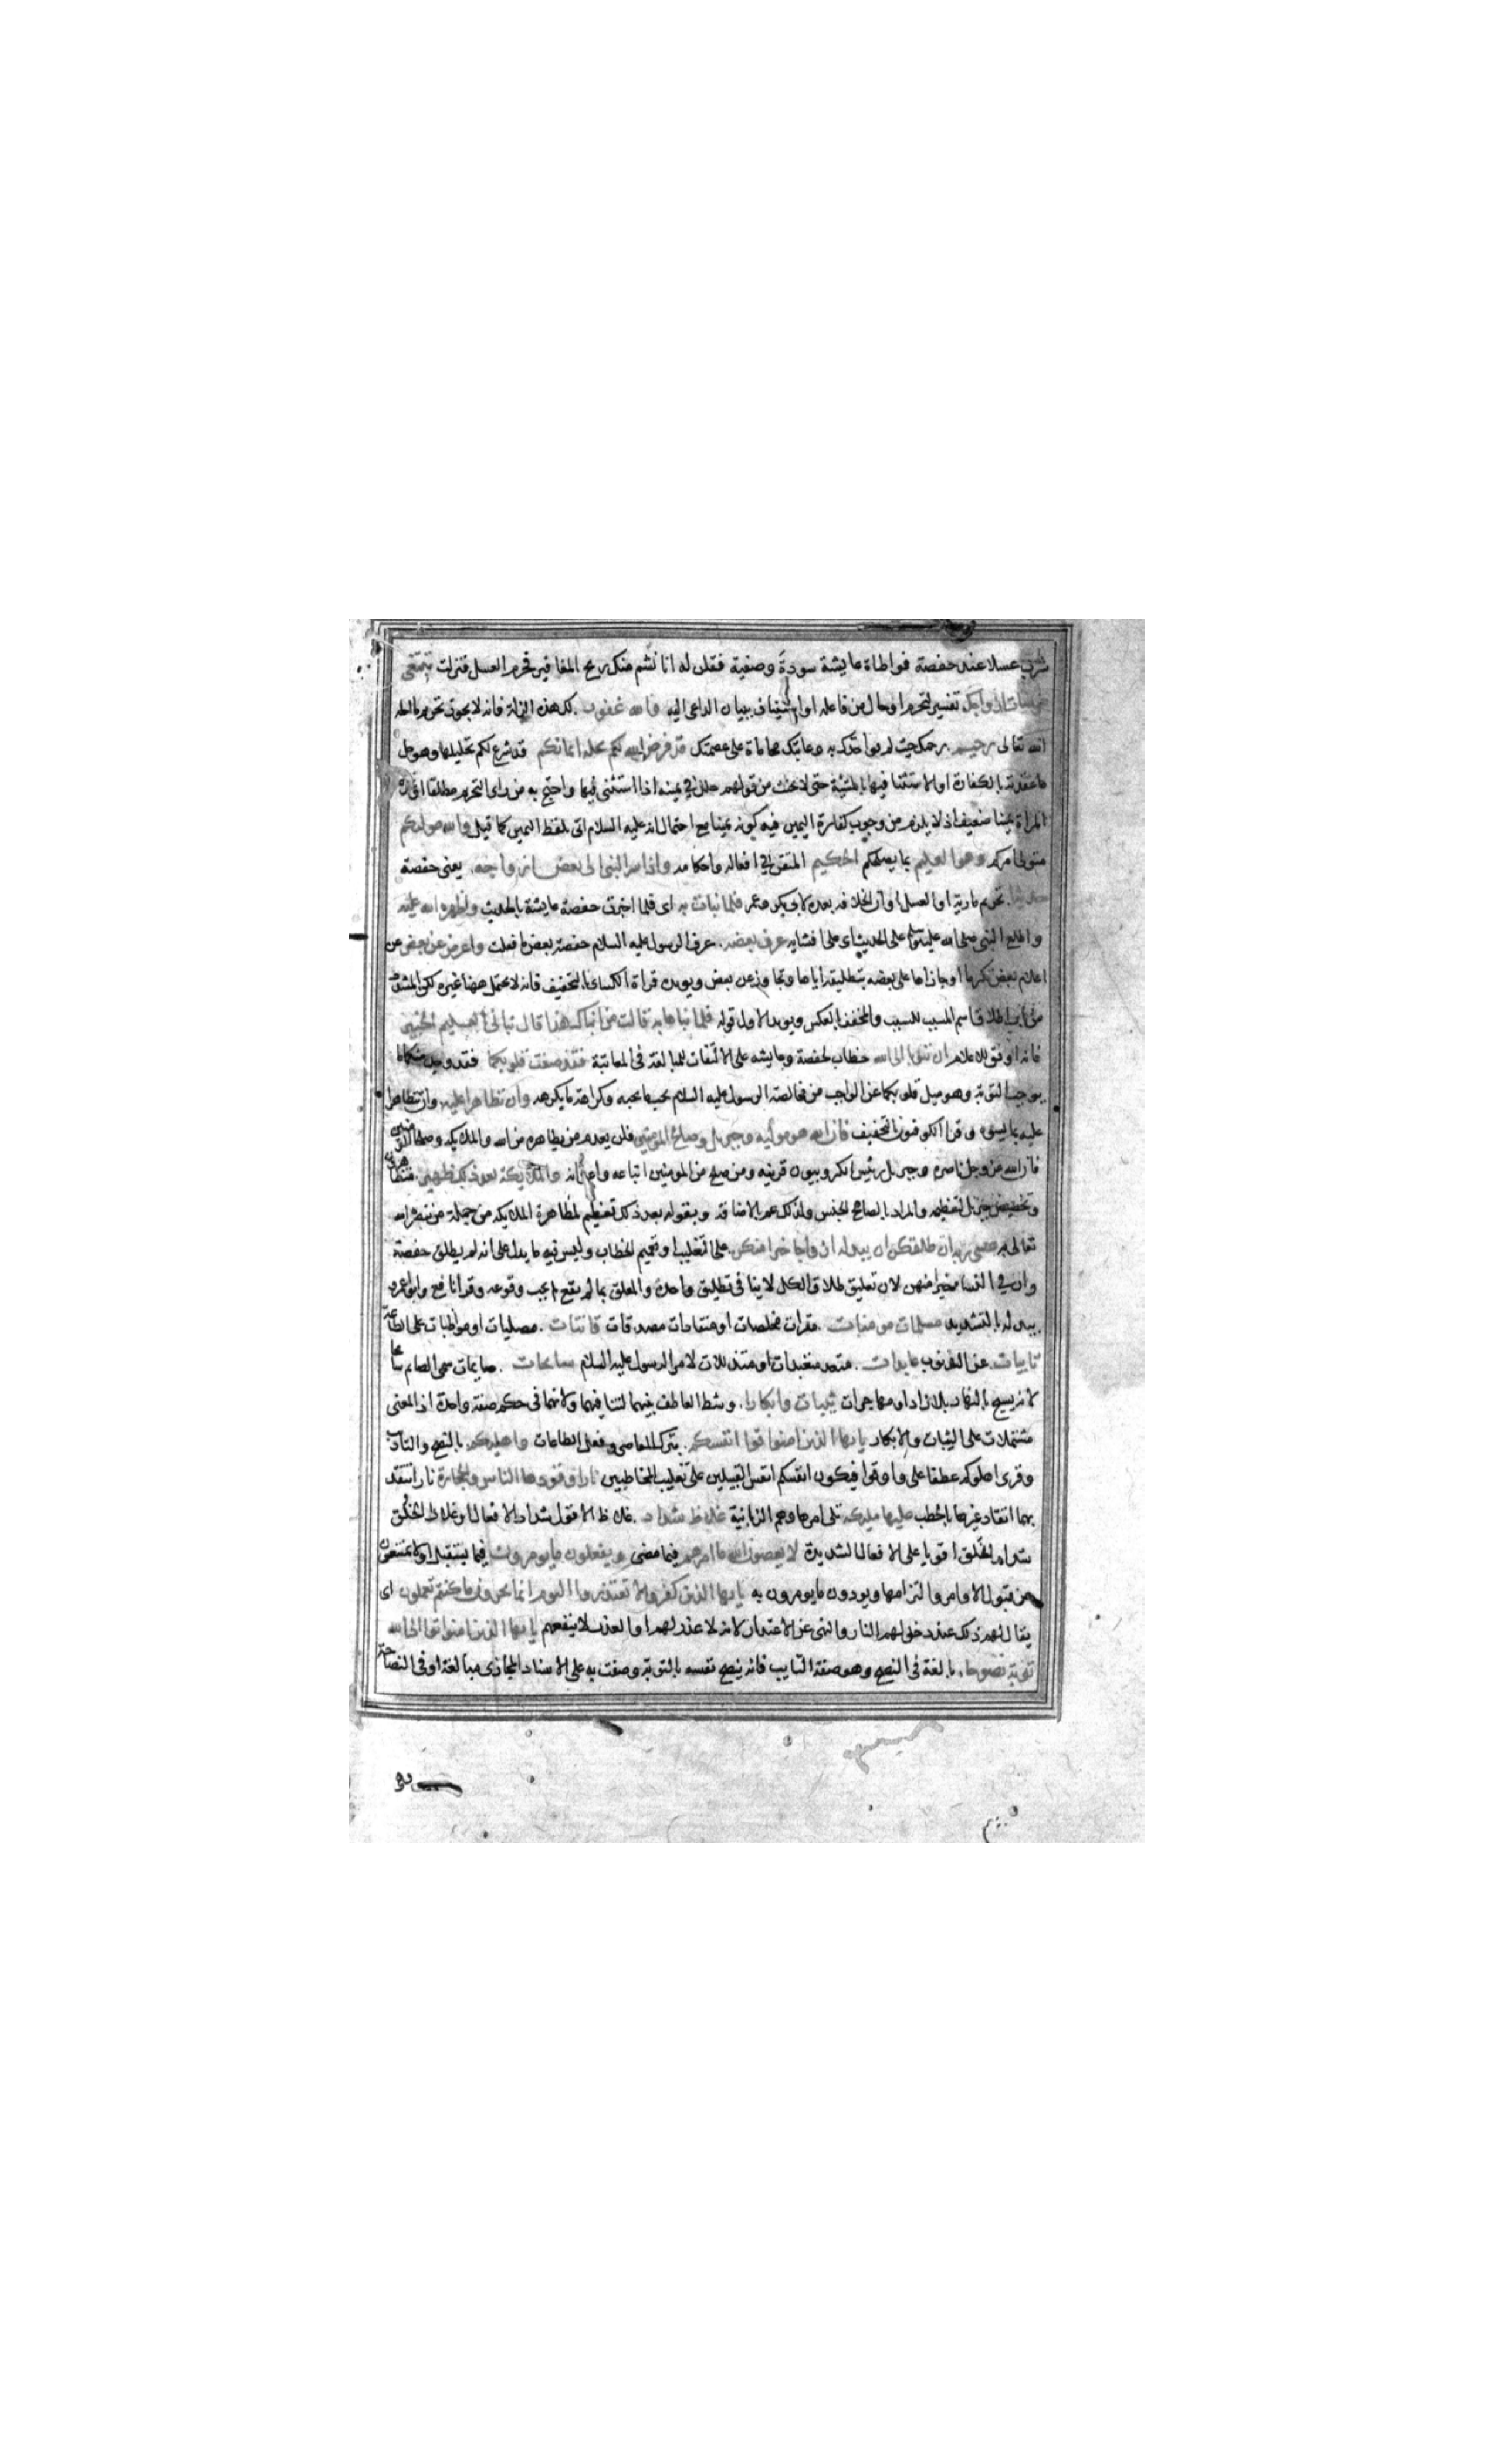 شرب عسلا عند حفصة فواطاة عايشة سودة وصفية فقلن له انا نشم منك ريح المغافير فحرم العسل فنزلت تبتغي
مرضات ازواجك تفسير لتحرم او حال من فاعله او استيناف ببيان الداعى اليه والله غفور لك هذه الزلة فانه لا يجوز تحريم ما احله
الله تعالى رحيم رحمك حيث لم يواخذك به وعاتبك محاماة على عصمتك قد فرض الله لكم تحلة ايمانكم قد شرع لكم تحليلها وهو حل
ما عقدته بالكفارة او الاستثنا فيها بالمشية حتى لا يحنث من قولهم حلل في يمينه اذا استثنى فيها واحتج به من راى التحريم مطلقا او تحريم
المراة يمينا ضعيف اذ لا يلزم من وجوب كفارة اليمين فيه كونه يمينا مع احتمال انه عليه السلام اتى بلفظ اليمين كما قيل والله موليكم
متولى امركم وهو العليم بما يصلحكم الحكيم المتقن في افعاله واحكامه واذ اسر النبى الى بعض ازواجه يعنى حفصة
حديثا تحريم مارية او العسل او ان الخلافة بعده لابى بكر وعمر فلما نبات به اى فلما اخبرت حفصة عايشة بالحديث واظهره الله عليه
واطلع النبى صلى الله عليه وسلم على الحديث اى على افشايه عرف بعضه عرف الرسول عليه السلام حفصة بعض ما فعلت واعرض عن بعض عن
اعلام بعض تكرما او جازاها على بعضه بتطليقه اياها وتجاوز عن بعض ويويده قراة الكساى بالتخفيف فانه لا يحتمل ههنا غيره لكن المشدد
من باب اطلاق اسم المسبب للسبب والمخفف بالعكس ويويد الاول قوله فلما نباها به قالت من انباك هذا قال نبانى العليم الخبير
فانه اوفق للاعلام ان تتوبا الى الله خطاب لحفصة وعايشه على الالتفات للمبالغة فى المعاتبة فقد صغت قلوبكما فقد وجد منكما ما
يوجب التوبة وهو ميل قلوبكما عن الواجب من مخالصة الرسول عليه السلام بحب ما يحبه وكراهة ما يكرهه وان تظاهرا عليه وان تتظاهرا
عليه بما يسوه وقرا الكوفيون بالتخفيف فان الله هو موليه وجبريل وصالح المومنين فلن يعدم من يظاهره من الله والملايكه وصلحا المومنين
فان الله عز وجل ناصره وجبريل رئيس الكروبيون قرينه ومن صلح من المومنين اتباعه واعوانه والملايكة بعد ذلك ظهير متظاهرون
وتخصيص جبريل لتعظيمه والمراد بالصالح الجنس ولذلك عم بالاضافة وبقوله بعد ذلك تعظيم لمظاهرة الملايكه من جملة من ينصره الله
تعالى به عسى ربه ان طلقكن ان يبدله ازواجا خيرا منكن على التغليب او تعميم الخطاب وليس فيه ما يدل على انه لم يطلق حفصة
وان في النسا خيرا منهن لان تعليق طلاق الكل لا ينافى تطليق واحدة والمعلق بما لم يقع لا يجب وقوعه وقرا نافع وابو عمرو
يبدله بالتشديد مسلمات مومنات مقرات مخلصات او منقادات مصدقات قانتات مصليات او مواظبات على الطاعة
تايبات عن الذنوب عابدات متعبدات او متذللات لامر الرسول عليه السلام سايحات صايمات سمى الصايم سايحا
لانه يسيح بالنهار بلا زاد او مهاجرات ثيبات وابكارا وسط العاطف بينهما لتنافيهما ولانهما فى حكم صفة واحدة اذ المعنى
مشتملات على الثيبات والابكار يايها الذين امنوا قوا انفسكم بترك المعاصى وفعل الطاعات واهليكم بالنصح والتاديب
وقرى اهلوكم عطفا على واو قوا فيكون انفسكم انفس القبيلين على تغليب المخاطبين نارا وقودها الناس والحجارة نارا تتقد
بهما اتقاد غيرها بالحطب عليها مليكه تلى امرها وهم الزبانية غلاظ شداد غلاظ الاقوال شداد الافعال او غلاظ الخلق
شداد الخلق اقويا على الافعال الشديدة لا يعصون الله ما امرهم فيما مضى ويفعلون ما يومرون فيما يستقبل او لا يمتنعون
من قبول الاوامر والتزامها ويودون ما يومرون به يايها الذين كفروا لا تعتذروا اليوم انما تجزون ما كنتم تعملون اى
يقال لهم ذلك عند دخولهم النار والنهى عن الاعتذار لانه لا عذر لهم او العذر لا ينفعهم يايها الذين امنوا توبوا الى الله
توبة نصوحا بالغة فى النصح وهو صفة التايب فانه ينصح نفسه بالتوبة وصفت به على الاسناد المجازى مبالغة او فى النصاحة